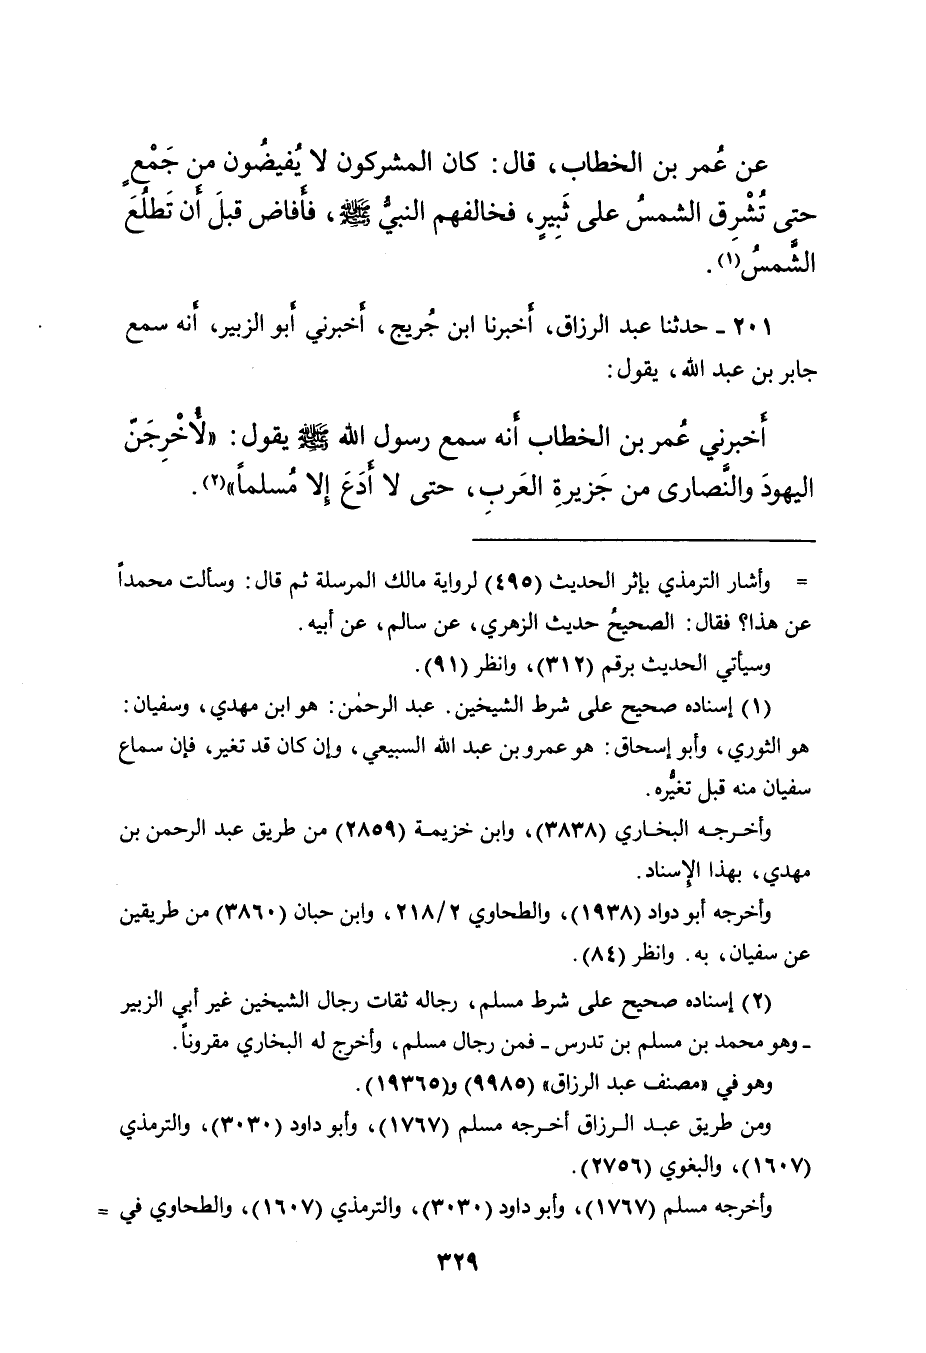 عن عُمر بن الخطاب، قال: كان المشركون لا يُفيضُون من جَمْعٍ
حتى تُشْرِق الشمسُ على ثَبِيرٍ، فخالفهم النبيُّ ﷺ، فأَفاض قبلَ أَن تَطلُعَ
الشَّمسُ(١).
٢٠١ ـ حدثنا عبد الرزاق، أَخبرنا ابن جُريج، أَخبرني أَبو الزبير، أَنه سمع
جابر بن عبد الله، يقول:
أَخبرني عُمر بن الخطاب أَنه سمع رسول الله ﷺ يقول: «لأُخْرِجَنّ
اليهودَ والنَّصارى من جَزيرةِ العَربِ، حتى لا أَدَعَ إِلا مُسلماً»(٢).
= وأشار الترمذي بإثر الحديث (٤٩٥) لرواية مالك المرسلة ثم قال: وسألت محمداً
عن هذا؟ فقال: الصحيحُ حديث الزهري، عن سالم، عن أبيه.
وسيأتي الحديث برقم (٣١٢)، وانظر (٩١).
(١) إسناده صحيح على شرط الشيخين. عبد الرحمٰن: هو ابن مهدي، وسفيان:
هو الثوري، وأبو إسحاق: هو عمرو بن عبد الله السبيعي، وإن كان قد تغير، فإن سماع
سفيان منه قبل تغيُّره.
وأخرجه البخاري (٣٨٣٨)، وابن خزيمة (٢٨٥٩) من طريق عبد الرحمن بن
مهدي، بهذا الإِسناد.
وأخرجه أبو دواد (١٩٣٨)، والطحاوي ٢١٨/٢، وابن حبان (٣٨٦٠) من طريقين
عن سفيان، به. وانظر (٨٤).
(٢) إسناده صحيح على شرط مسلم، رجاله ثقات رجال الشيخين غير أبي الزبير
ـ وهو محمد بن مسلم بن تدرس ـ فمن رجال مسلم، وأخرج له البخاري مقروناً.
وهو في «مصنف عبد الرزاق» (٩٩٨٥) و(١٩٣٦٥).
ومن طريق عبد الرزاق أخرجه مسلم (١٧٦٧)، وأبو داود (٣٠٣٠)، والترمذي
(١٦٠٧)، والبغوي (٢٧٥٦).
وأخرجه مسلم (١٧٦٧)، وأبو داود (٣٠٣٠)، والترمذي (١٦٠٧)، والطحاوي في =
٣٢٩